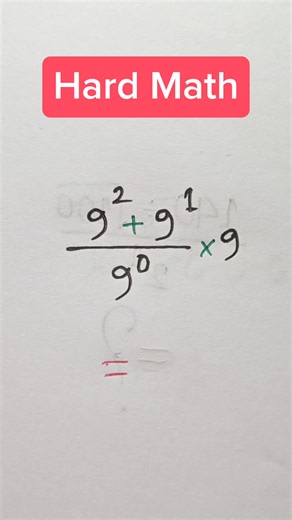 Hard Math
9² + 9¹
9⁰
× 9
=